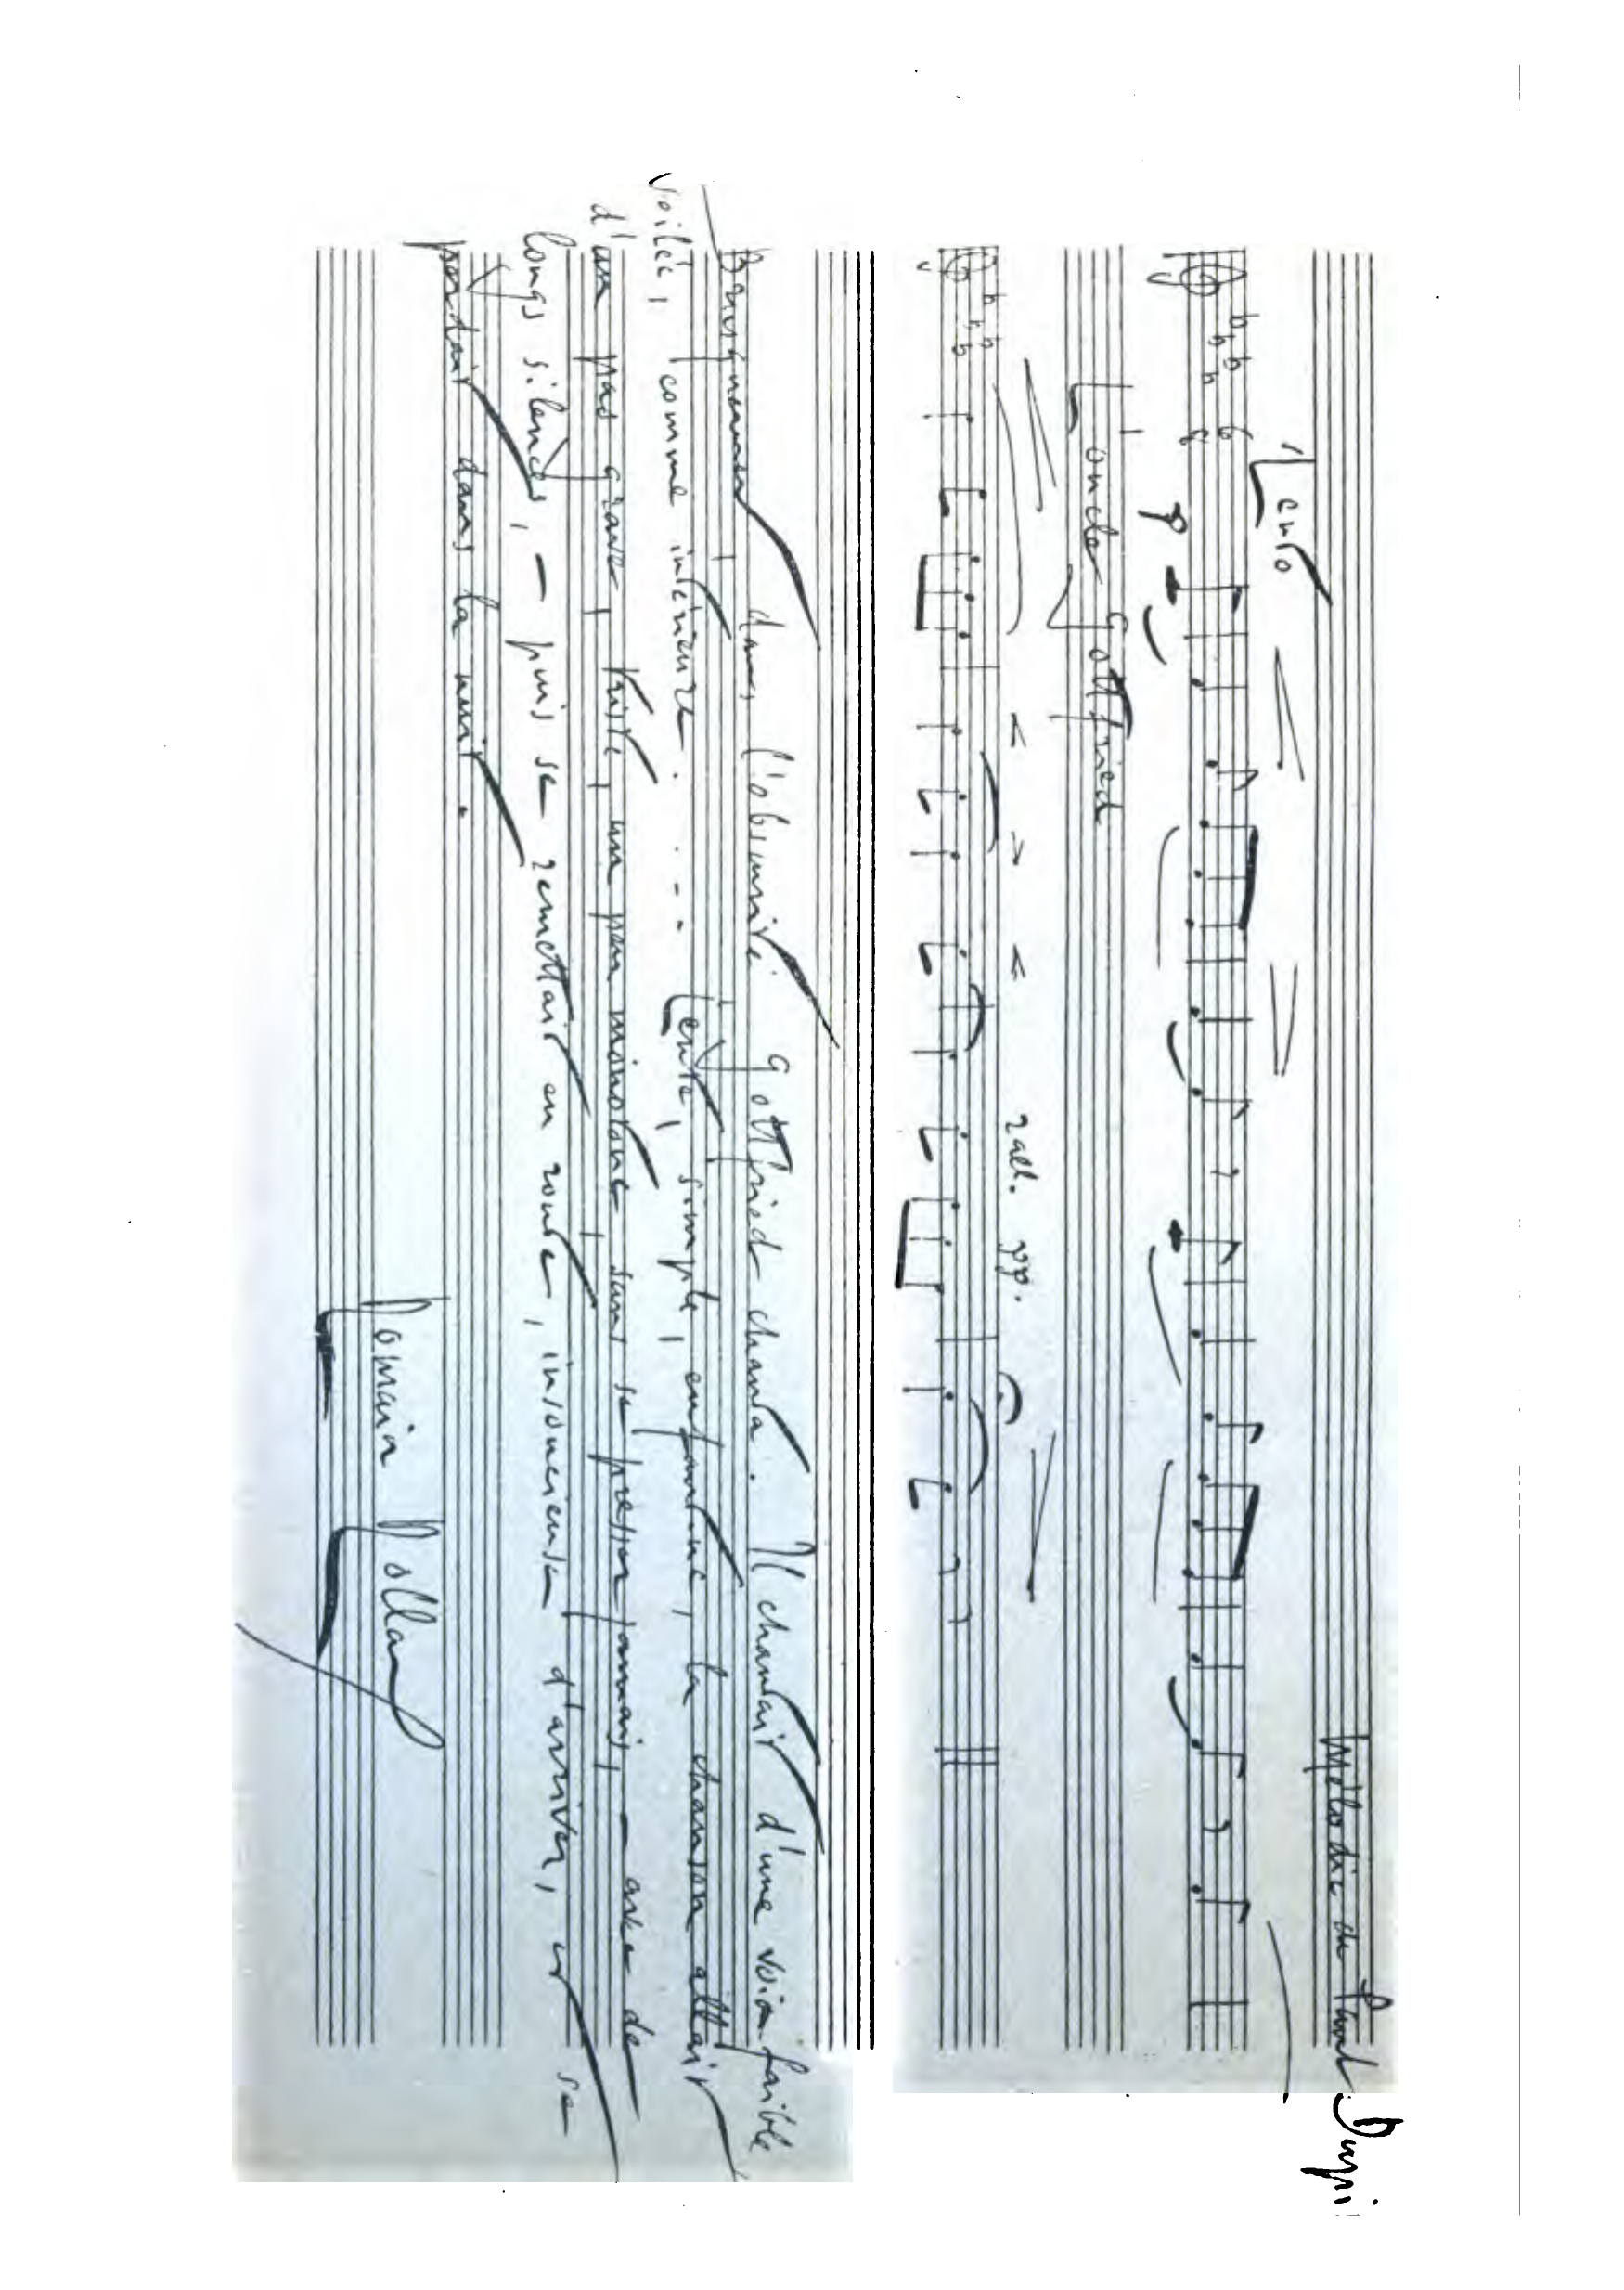 Mélodie de Paul Dupi
Lento
6
8
p
L'oncle Gottfried
rall. pp.
Brusquement, dans l'obscurité Gottfried chanta. Il chantait d'une voix faible
voilée, comme intérieure..... Lente, simple, enfantine, la chanson allait
d'un pas grave, triste, un peu monotone sans se presser jamais, – avec de
longs silences, – puis se remettait en route, insouciante d'arriver, et se
perdait dans la nuit.
Romain Rolland